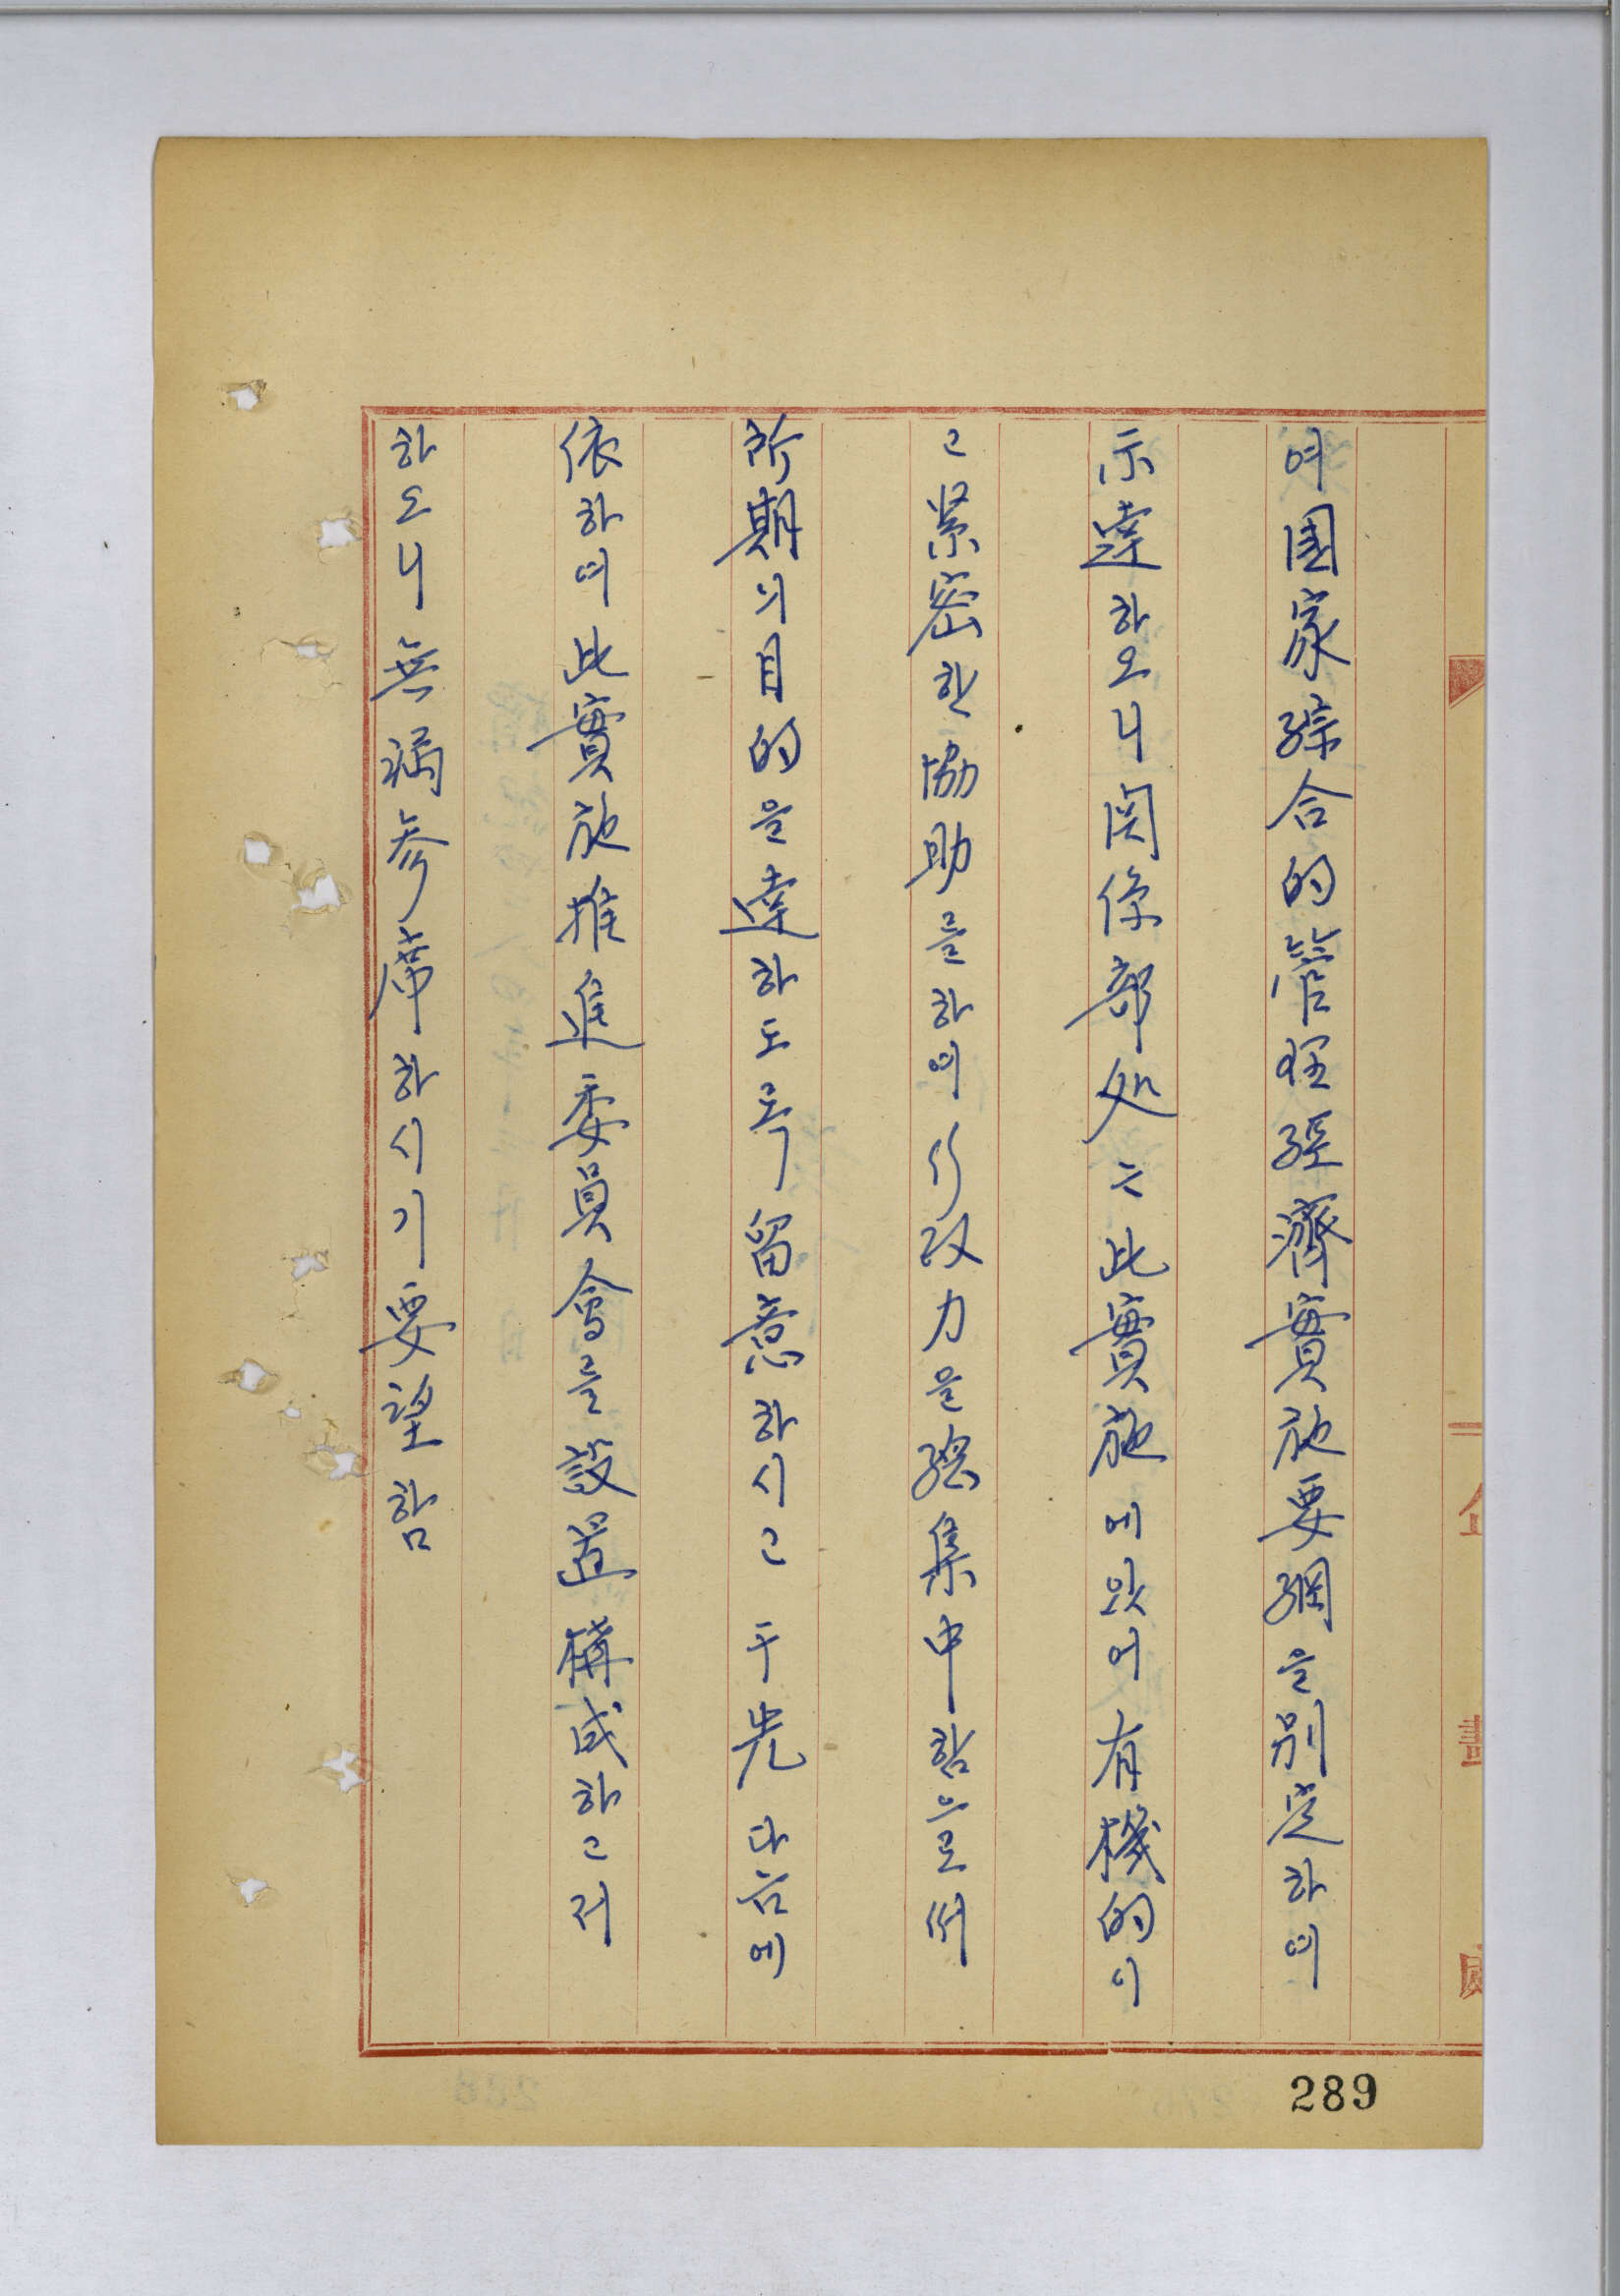 여國家綜合的管理經濟實施要綱을別定하여
示達하오니関係部処는此實施에있어有機的이
고緊密한協助를하여行政力을總集中함으로써
所期의目的을達하도록留意하시고于先다음에
依하여此實施推進委員会를設置構成하고저
하오니無漏参席하시기要望함
289